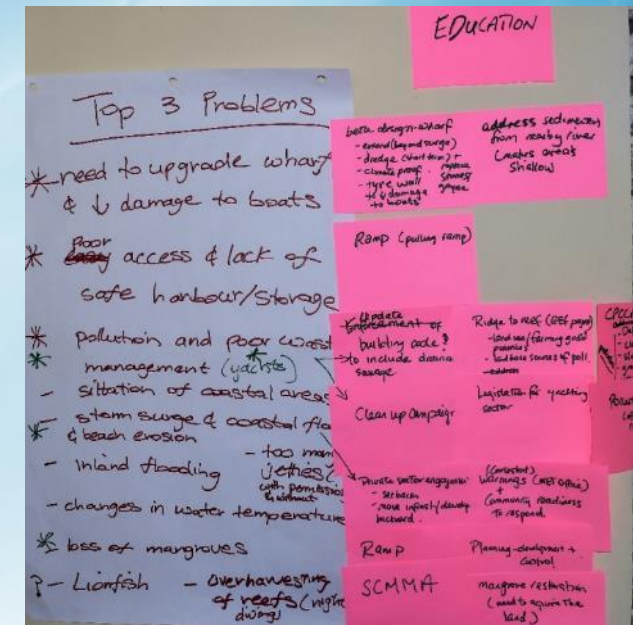 EDUCATION
Top 3 Problems
* need to upgrade wharf
& ↓ damage to boats
* Poor access & lack of
safe harbour/storage
* pollution and poor waste
management (yachts)
- siltation of coastal areas
* - storm surge & coastal flo
& beach erosion
- too man
jetties
with permission
& without
- inland flooding
- changes in water temperature
* loss of mangroves
? - Lionfish - overharvesting
of reefs (night
diving)
better design-wharf
- extend (beyond surge)
- dredge (short term) +
- climate proof
- tyre wall
to ↓ damage
to boats
address sedimentation
from nearby river
(makes areas
shallow
Ramp (pulling ramp)
Update
building code?
to include
sewage
Ridge to reef (GEF project)
- land use/farming good
practices
- land base sources of poll.
Clean up Campaign
Legislation for yachting
sector
Private sector engagement
- setbacks
- move
backward.
(consistent)
warnings (MET office)
+
Community readiness
to respond.
Ramp
Planning-development +
control
SCMMA
mangrove restoration
(need to acquire the
land)